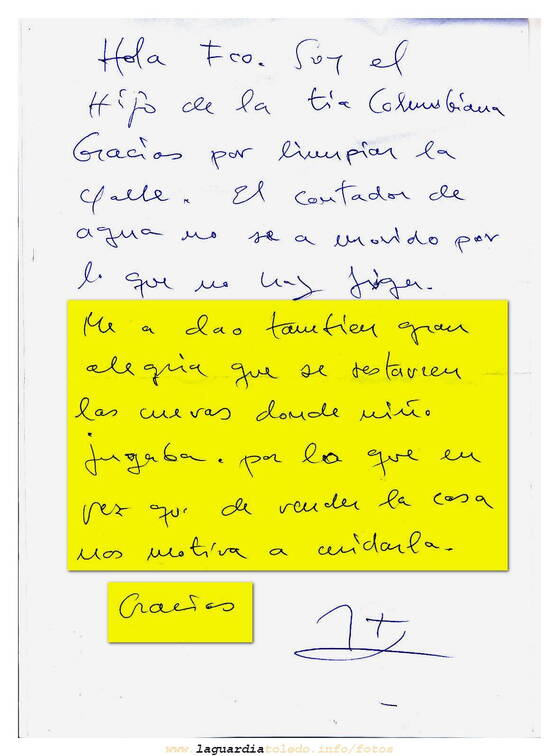 Hola Fco. Soy el
Hijo de la tia Columbiana
Gracias por limpiar la
Calle. El contador de
agua no se a movido por
lo que no hay fuga.
Me a dao tambien gran
alegria que se restauren
las cuevas donde niño
jugaba. por lo que en
vez que de vender la casa
nos motiva a cuidarla.
Gracias
www.laguardiatoledo.info/fotos